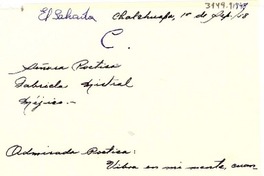 3449.1948
El Salvador Chalchuapa, 1º de Sep./48
C.
Señora Poetisa
Gabriela Mistral
Méjico.-
Admirada Poetisa:
Vibra en mi mente, cuan-